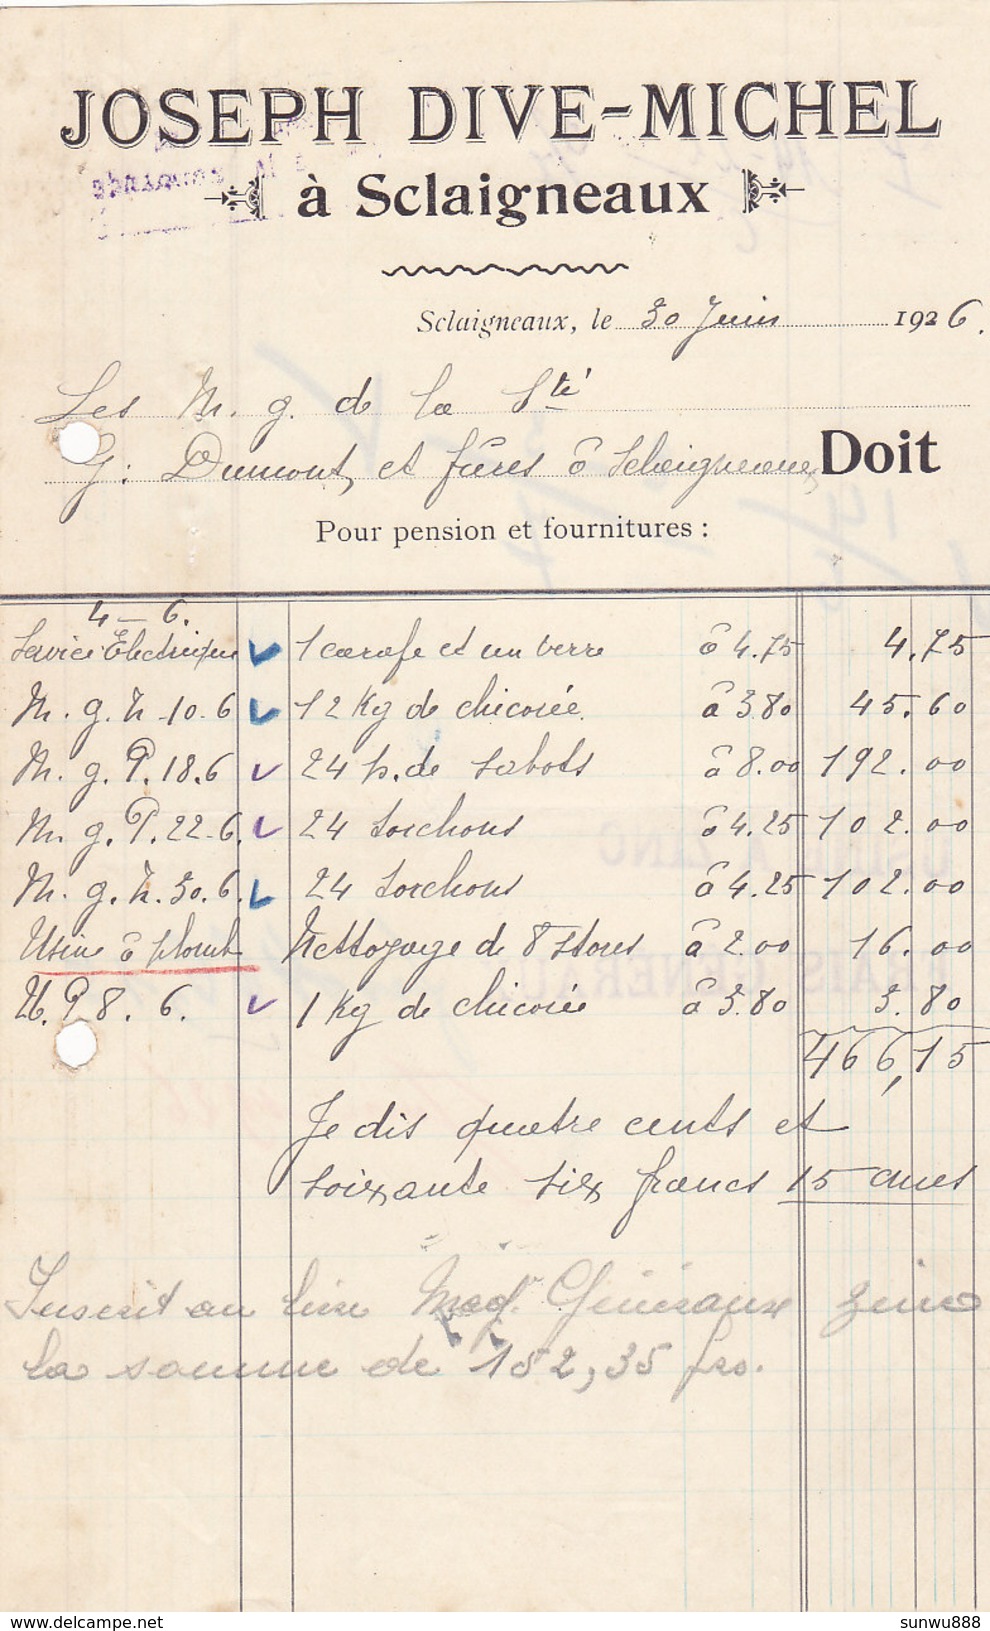 JOSEPH DIVE-MICHEL
à Sclaigneaux
Sclaigneaux, le 30 Juin 1926.
Les M. g. de la Sté
G. Dumont, et frères à Sclaigneaux Doit
Pour pension et fournitures :
4 - 6.
Service Electrique 1 carafe et un verre à 4.75 4.75
M. g. Z. 10. 6 12 Kg de chicorée à 3.80 45.60
M. g. P. 18. 6 24 p. de sabots à 8.00 192.00
M. g. P. 22. 6. 24 torchons à 4.25 102.00
M. g. Z. 30. 6. 24 torchons à 4.25 102.00
Usine à plomb Nettoyage de 8 stores à 2.00 16.00
U. P 8. 6. 1 Kg de chicorée à 3.80 3.80
466,15
Je dis quatre cents et
soixante six francs 15 cmes
Inscrit au livre Mag. Généraux zinc
la somme de 152,35 frs.
www.delcampe.net
sunwu888